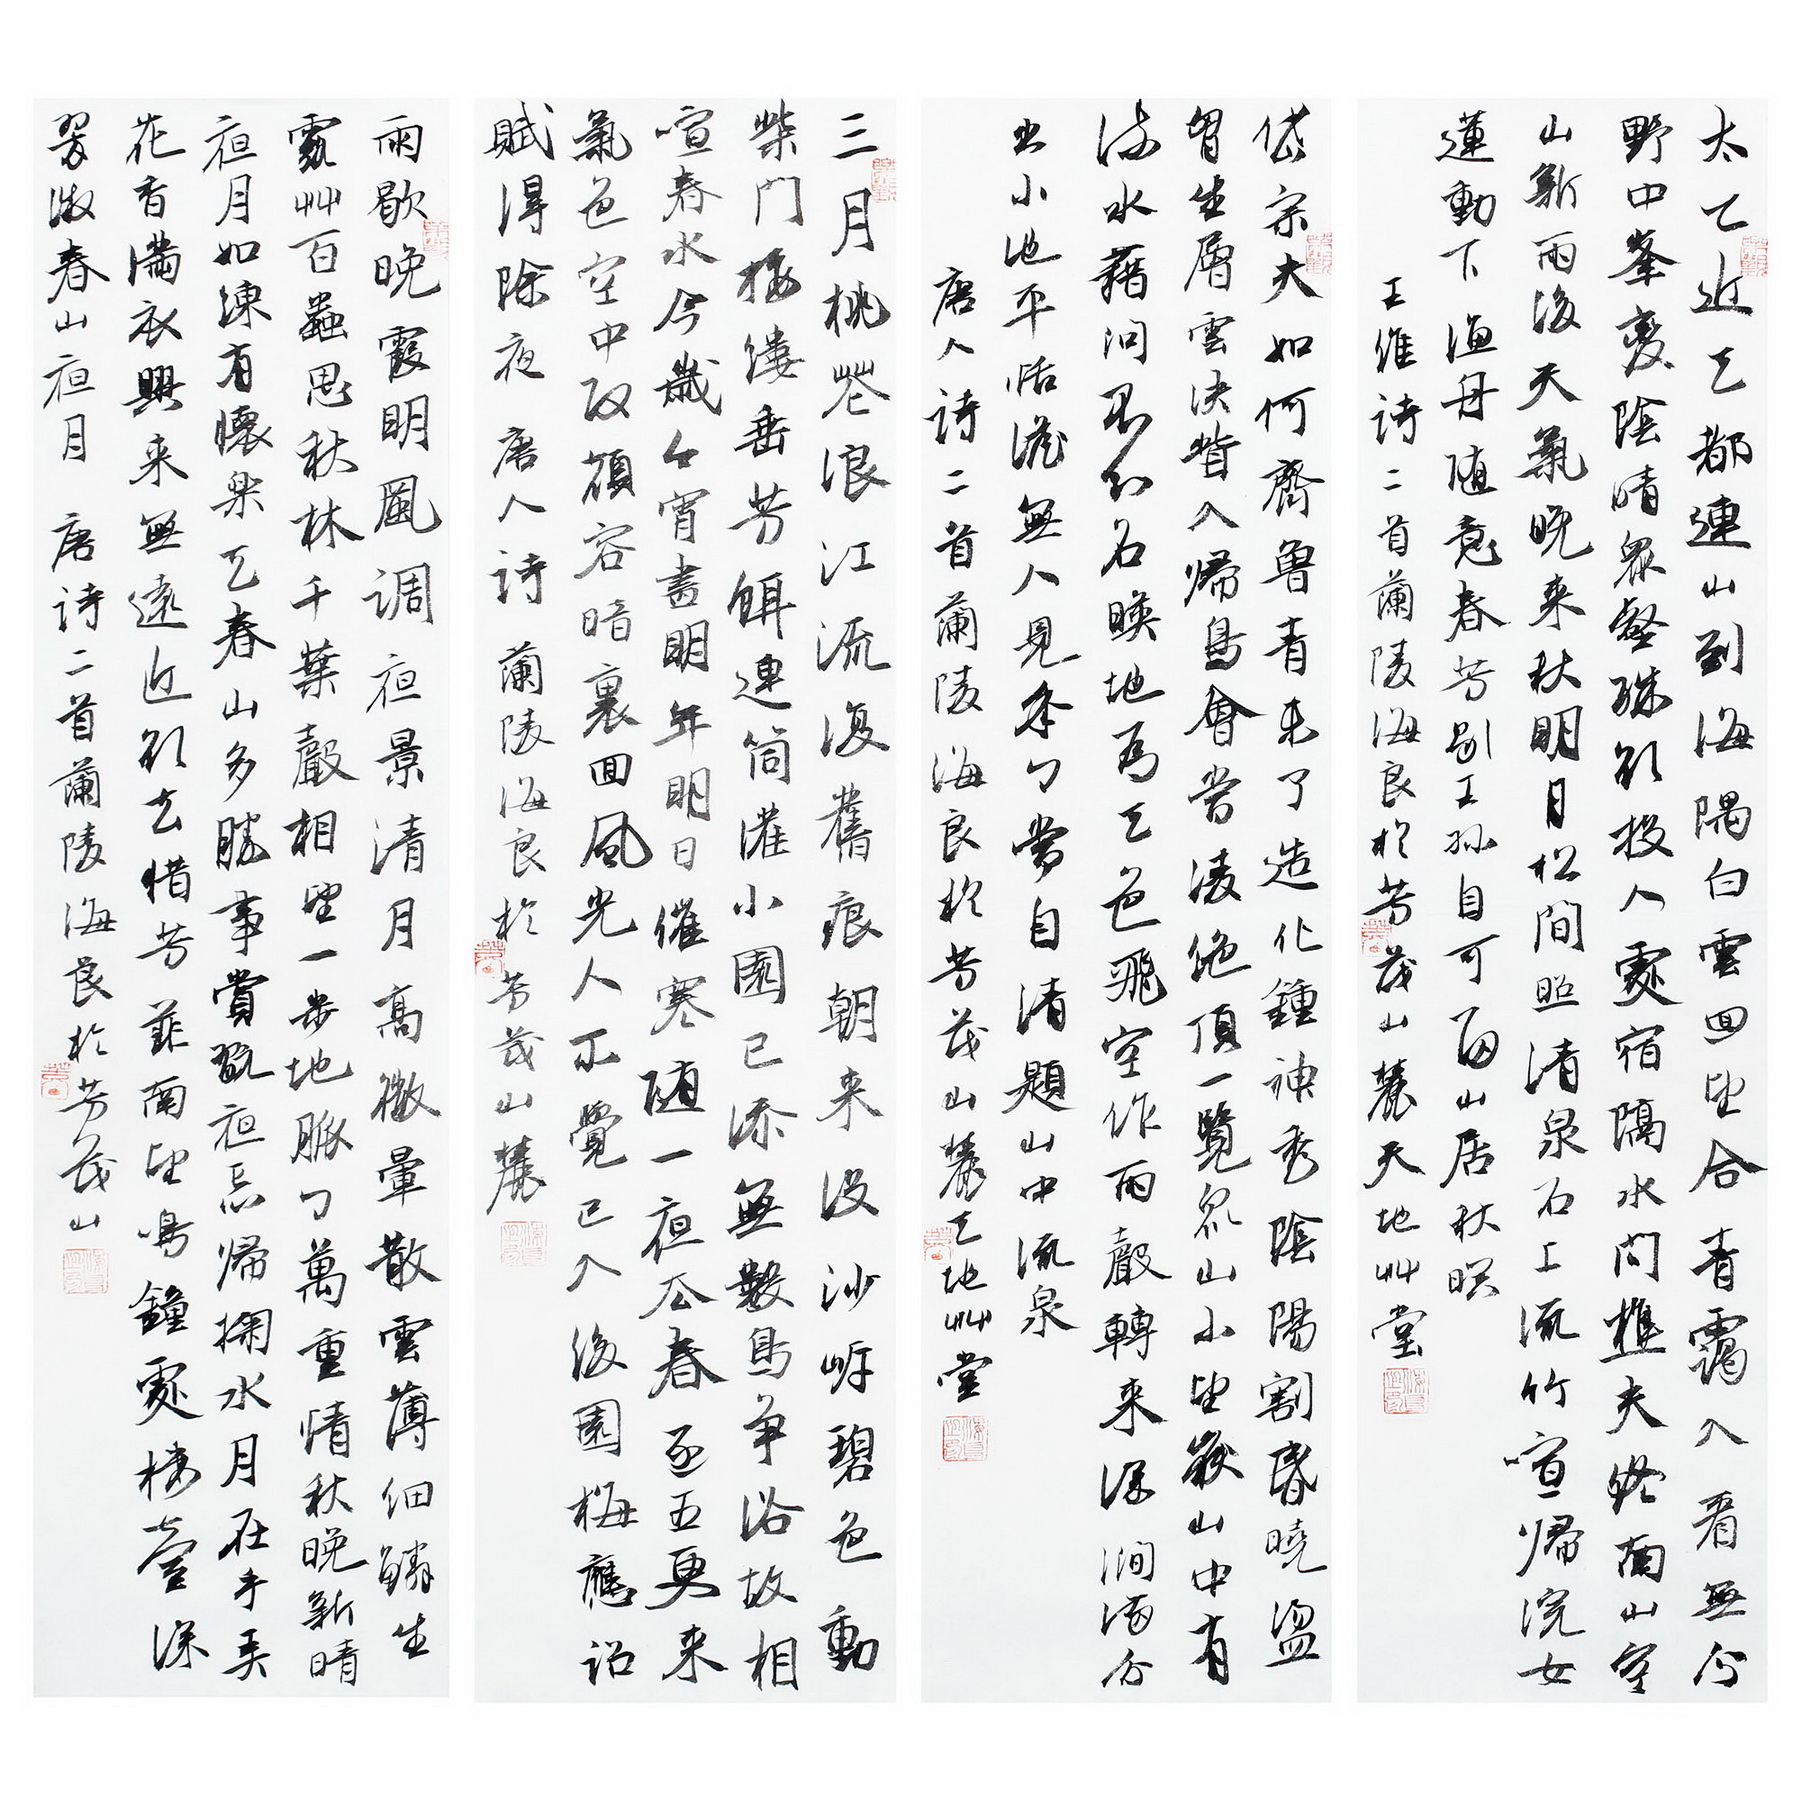 太乙近天都連山到海隅白雲回望合青靄入看無分
野中峯變陰晴眾壑殊欲投人處宿隔水問樵夫終南山空
山新雨後天氣晚来秋明月松間照清泉石上流竹喧歸浣女
蓮動下漁舟随意春芳歇王孫自可留山居秋暝
王維詩二首蘭陵海良於芳茂山麓天地艸堂
岱宗夫如何齊魯青未了造化鍾神秀陰陽割昏曉盪
胷生層雲決眥入歸鳥會當凌絕頂一覽眾山小望嶽山中有
流水藉問不知名映地為天色飛空作雨聲轉来深澗滿分
出小池平恬澹無人見年々常自清題山中流泉
唐人詩二首蘭陵海良於芳茂山麓天地艸堂
三月桃花浪江流復舊痕朝来没沙岸碧色動
柴門接縷垂芳餌連筒灌小園已添無數鳥争浴故相
喧春水今歲今宵盡明年明日催寒随一夜去春逐五更来
氣色空中改顏容暗裏回風光人不覺已入後園梅應詔
賦得除夜 唐人詩 蘭陵海良於芳茂山麓
雨歇晚霞明風調夜景清月高微暈散雲薄細鱗生
露艸百蟲思秋林千葉聲相望一步地脈々萬重情秋晚新晴
夜月如練有懷樂天春山多勝事賞翫夜忘歸掬水月在手弄
花香滿衣興来無遠近欲去惜芳菲南望鳴鐘處樓臺深
翠微春山夜月 唐詩二首蘭陵海良於芳茂山